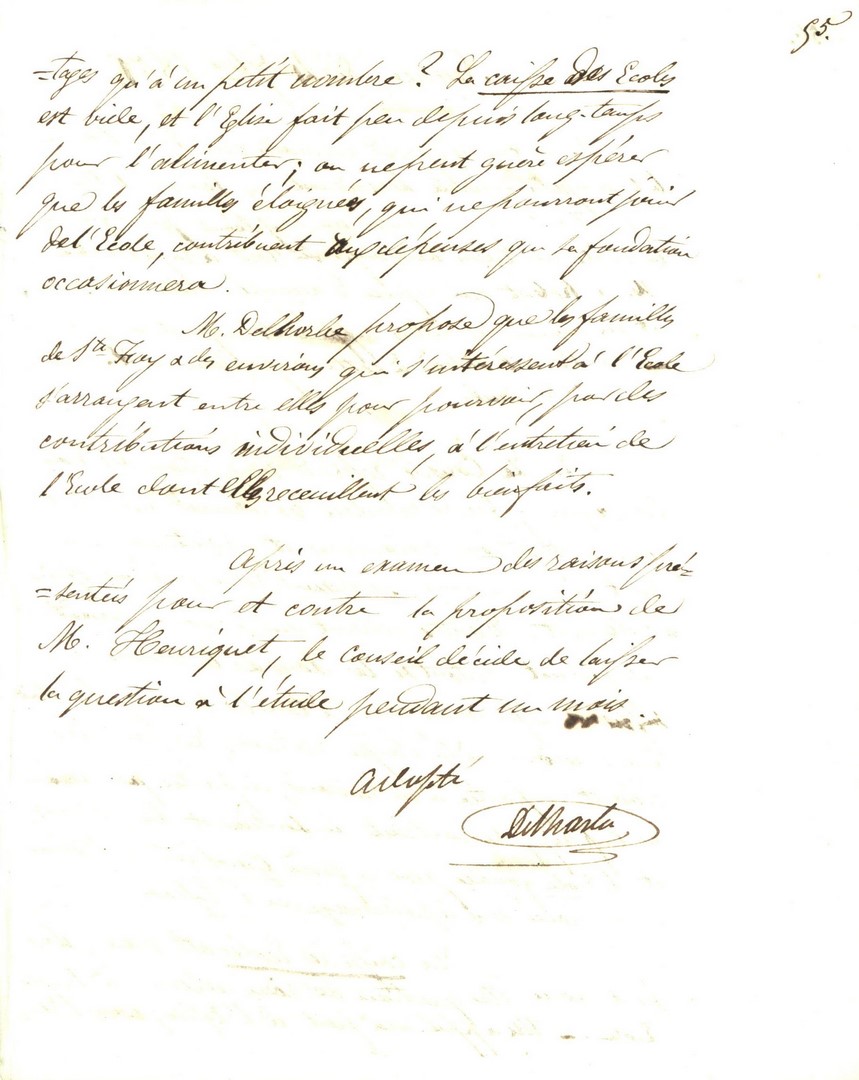 95.
=tages qu'à un petit nombre? La caisse des Ecoles
est vide, et l'Eglise fait peu depuis long-temps
pour l'alimenter; on ne peut guère espérer
que les familles éloignées, qui ne pourront jouir
de l'Ecole, contribuent aux dépenses que sa fondation
occasionnera.
M. Delhorbe propose que les familles
de Ste Foy & des environs qui s'intéressent à l'Ecole
s'arrangent entre elles pour pourvoir, par des
contributions individuelles, à l'entretien de
l'Ecole dont elles receuillent les bienfaits.
Après un examen des raisons pré=
=sentées pour et contre la proposition de
M. Henriquet, le conseil décide de laisser
la question à l'étude pendant un mois.
Adopté